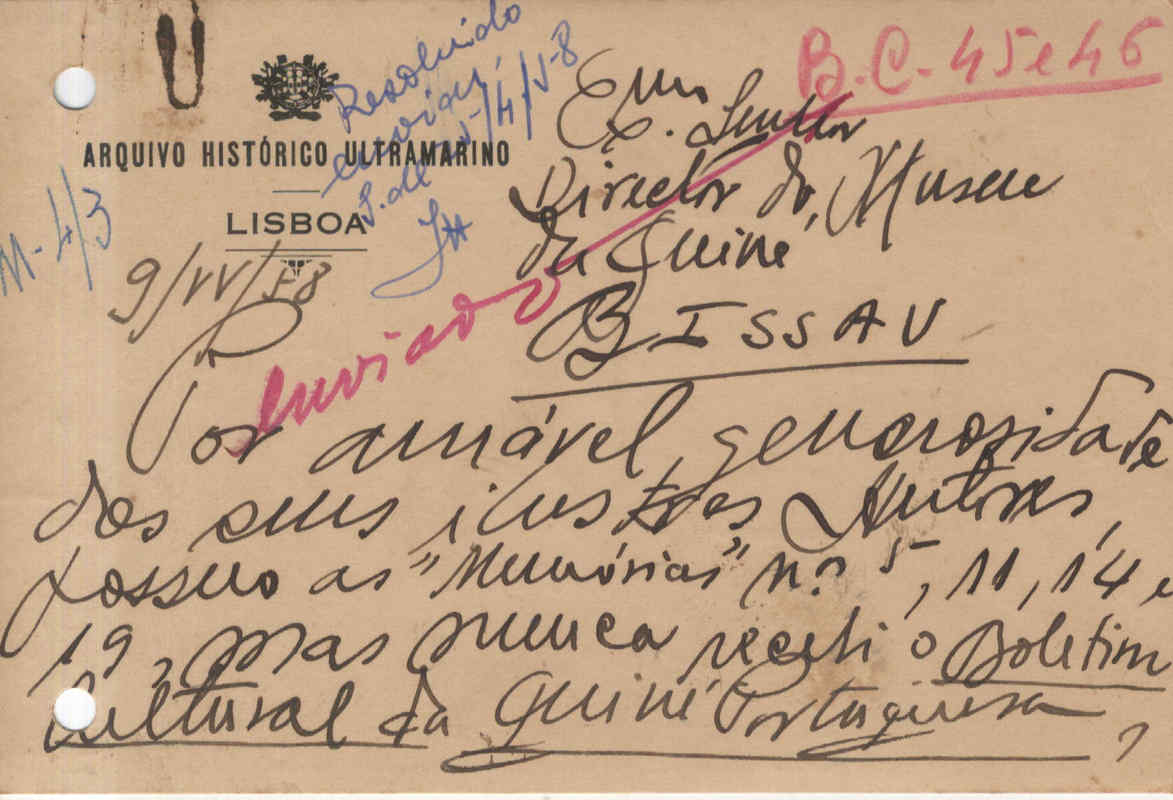 B.C. 45 e 46
Resolvido
enviar
S. de 4/5-8
ARQUIVO HISTÓRICO ULTRAMARINO
LISBOA
M-4/3
9/IV/58
Exmo. Senhor
Director do Museu
da Guiné
BISSAU
enviado
Por amável generosidade
dos seus ilustres Autores,
possuo as "Memórias" n.os 5, 11, 14 e
19, mas nunca recebi o Boletim
Cultural da Guiné Portuguesa,